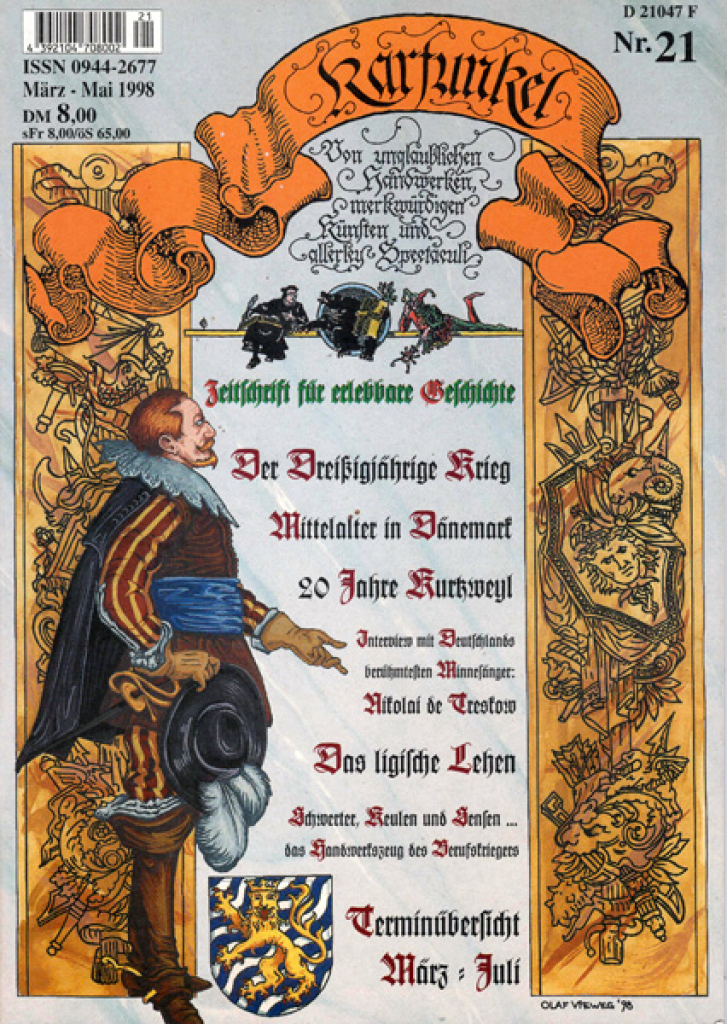 21
4 392104 708002
ISSN 0944-2677
März - Mai 1998
DM 8,00
sFr 8,00/öS 65,00
D 21047 F
Nr. 21
Karfunkel
Von unglaublichen
Handwerken,
merkwürdigen
Künsten und
allerley Spectaculi
Zeitschrift für erlebbare Geschichte
Der Dreißigjährige Krieg
Mittelalter in Dänemark
20 Jahre Kurtzweyl
Interview mit Deutschlands
berühmtesten Minnesänger:
Nikolai de Treskow
Das ligische Lehen
Schwerter, Keulen und Sensen ...
das Handwerkszeug des Berufskriegers
Terminübersicht
März - Juli
OLAF VIEWEG '98